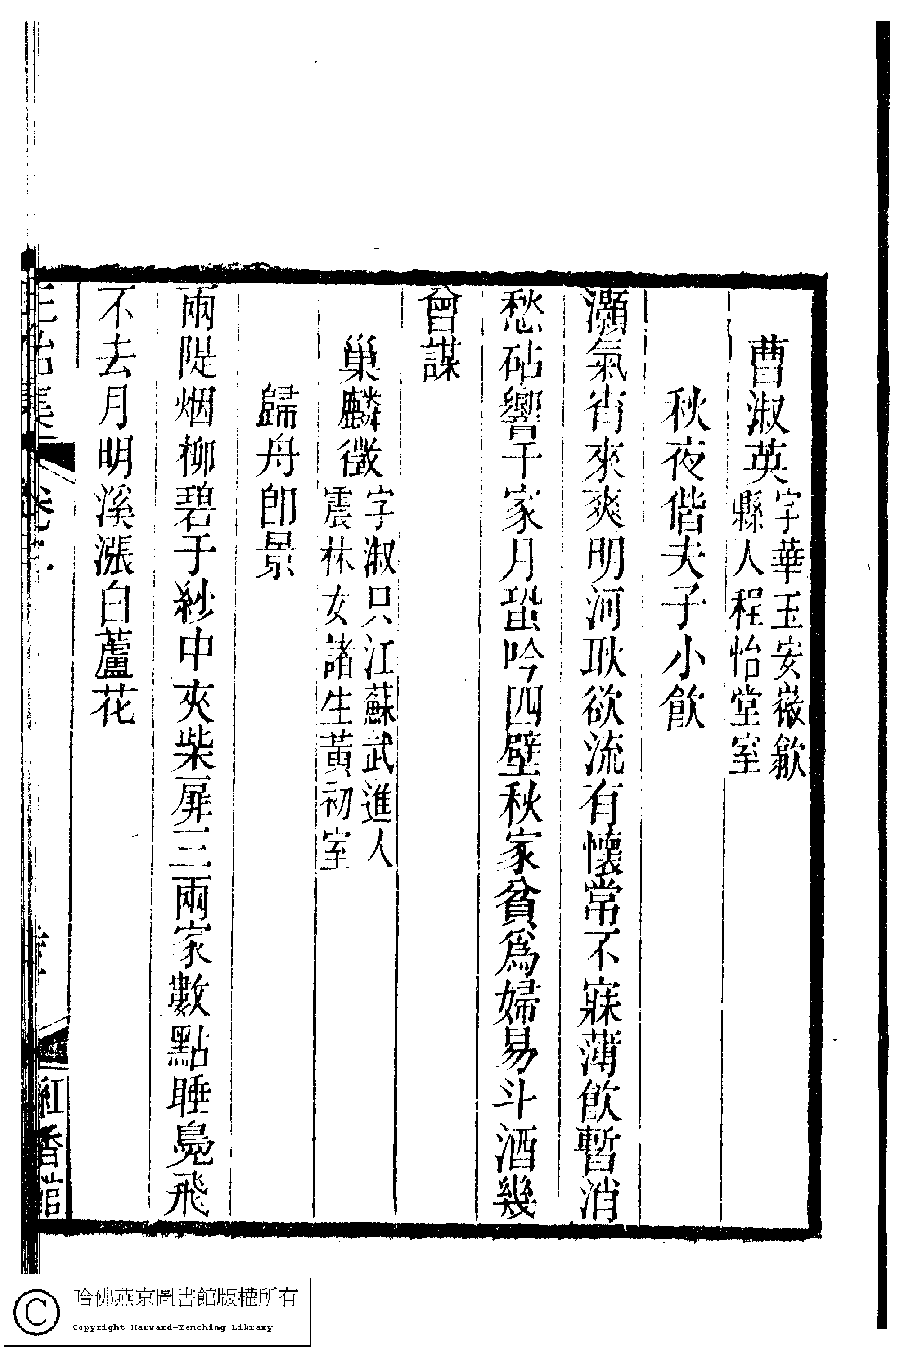 曹淑英字華玉安徽歙
縣人程怡堂室
秋夜偕夫子小飮
灝氣宵來爽明河耿欲流有懷常不寐薄飮暫消
愁砧響千家月蛩吟四壁秋家貧爲婦易斗酒幾
曾謀
巢麟徵字淑只江蘇武進人
震林女諸生黃初室
歸舟卽景
兩隄烟柳碧于紗中夾柴屛三兩家數點睡鳧飛
不去月明溪漲白蘆花
紅香館
哈佛燕京圖書館版權所有
Copyright Harvard-Yenching Library